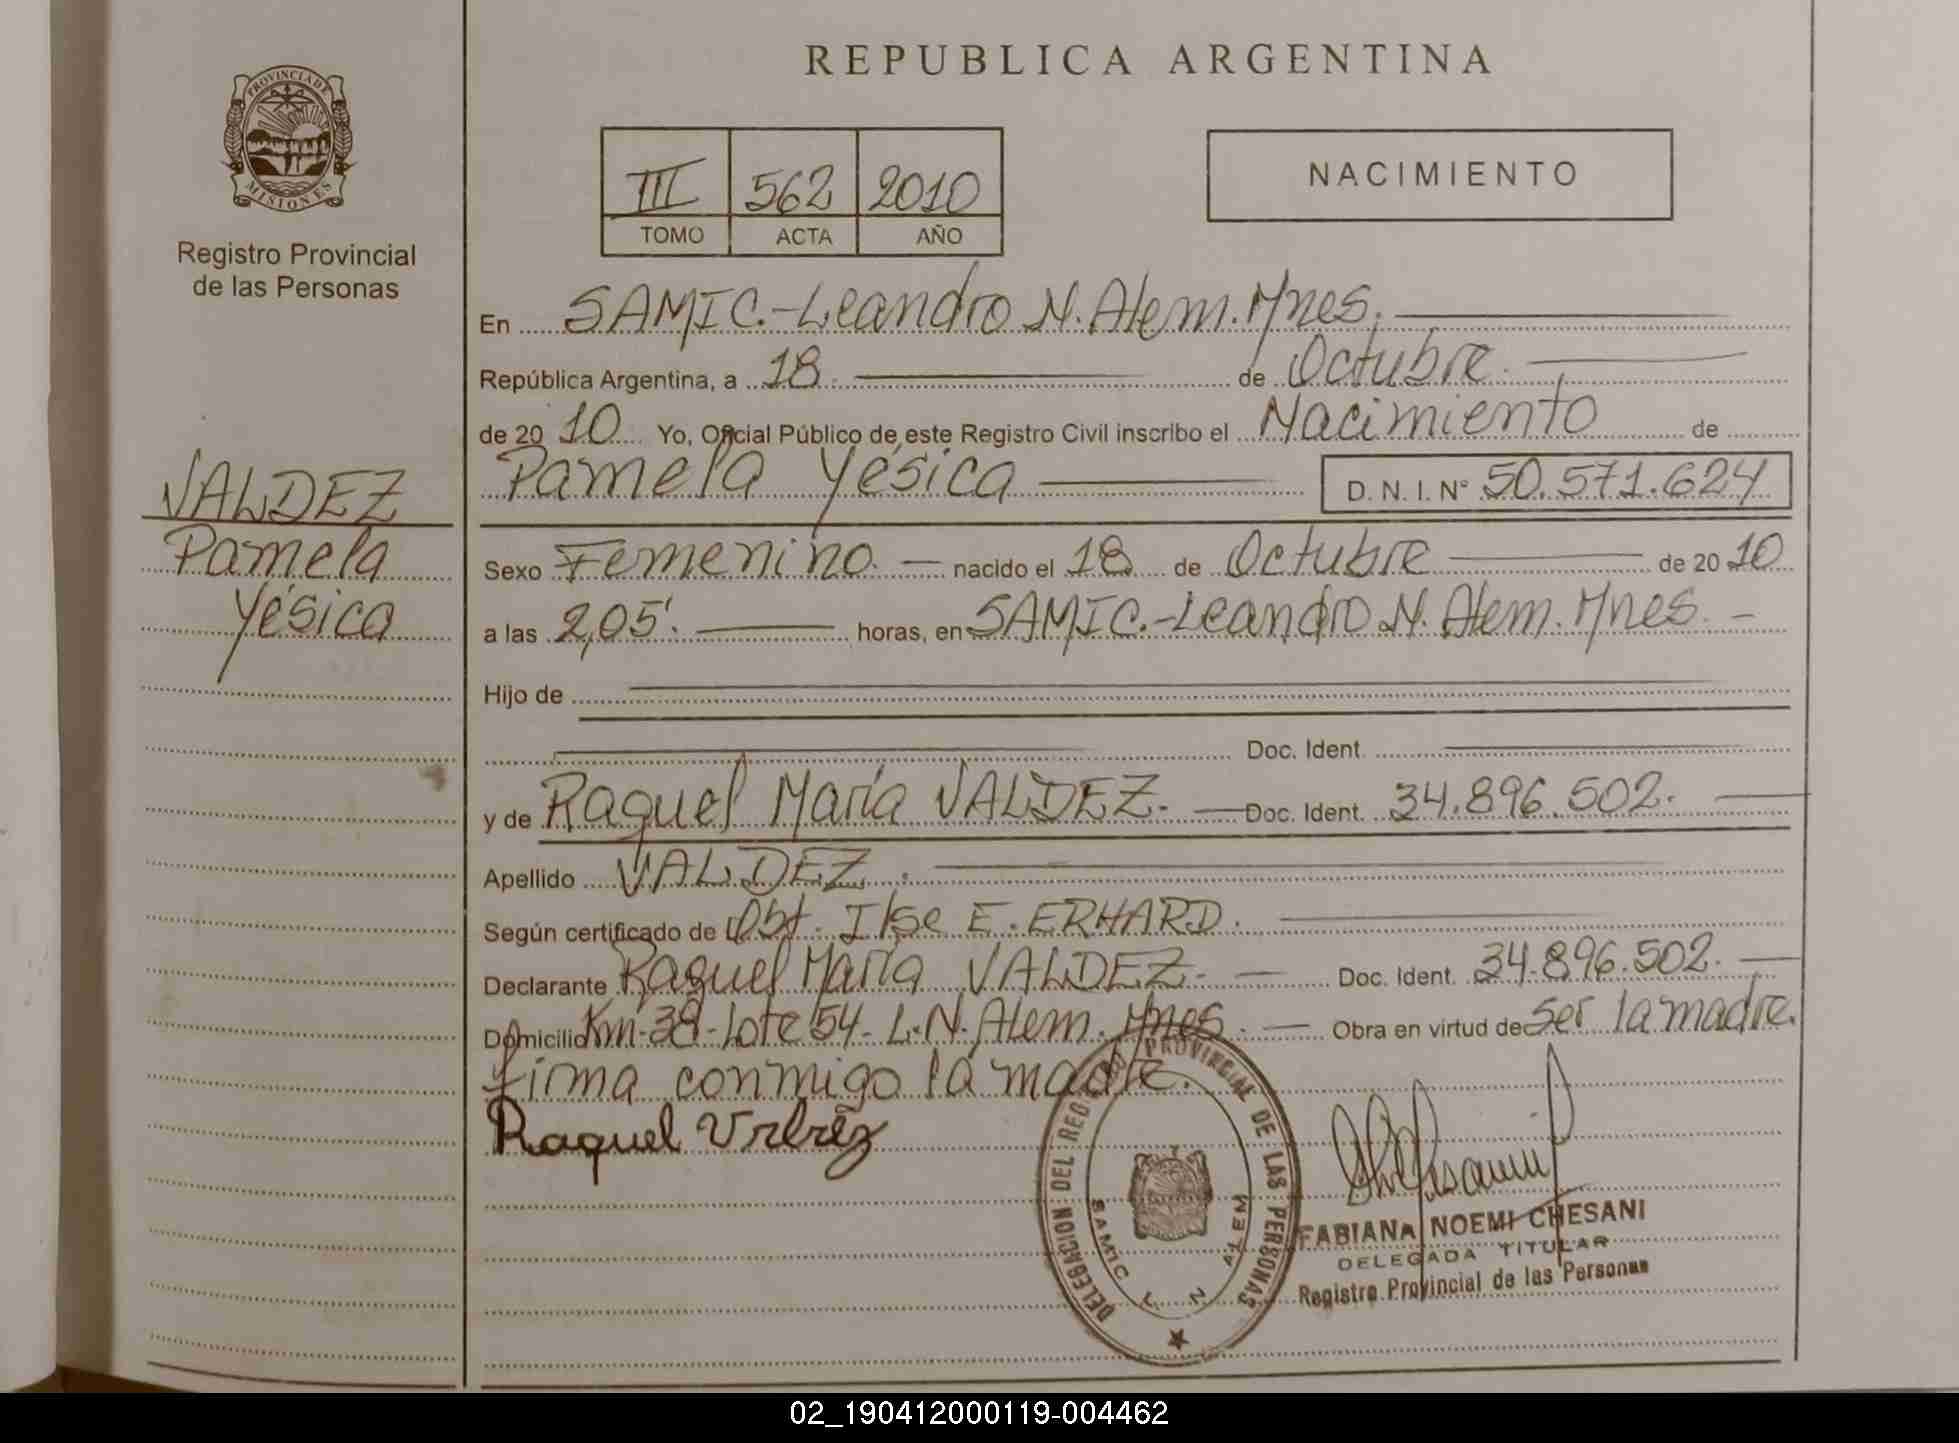 PROVINCIA DE
MISIONES
Registro Provincial
de las Personas
VALDEZ
Pamela
Yésica
REPUBLICA ARGENTINA
III 562 2010
TOMO ACTA AÑO
NACIMIENTO
En SAMIC.-Leandro N. Alem. Mnes.
República Argentina, a 18 de Octubre
de 2010 Yo, Oficial Público de este Registro Civil inscribo el Nacimiento de
Pamela Yésica D. N. I. N° 50.571.624
Sexo Femenino. nacido el 18 de Octubre de 2010
a las 2,05'. horas, en SAMIC.-Leandro N. Alem. Mnes.
Hijo de
Doc. Ident.
y de Raquel María VALDEZ. Doc. Ident. 34.896.502.
Apellido VALDEZ.
Según certificado de Obst. Ilse E. ERHARD.
Declarante Raquel María VALDEZ. Doc. Ident. 34.896.502.
Domicilio Km-38-Lote 54- L.N. Alem. Mnes. Obra en virtud de ser la madre.
Firma conmigo la madre.
Raquel
DELEGACION DEL REG PROVINCIAL DE LAS PERSONAS
SAMIC L N ALEM
FABIANA NOEMI CHESANI
DELEGADA TITULAR
Registro Provincial de las Personas
02_190412000119-004462